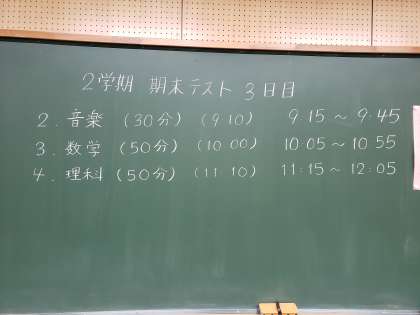 2学期 期末テスト 3日目
2. 音楽 (30分) (9:10) 9:15 ~ 9:45
3. 数学 (50分) (10:00) 10:05 ~ 10:55
4. 理科 (50分) (11:10) 11:15 ~ 12:05